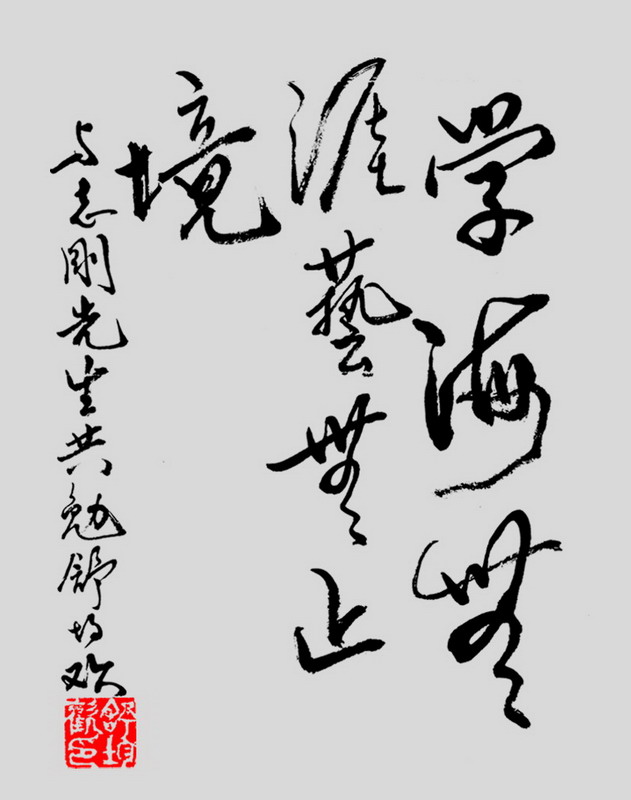 学海無
涯藝無止
境
与志刚先生共勉舒均欢
舒均歡印